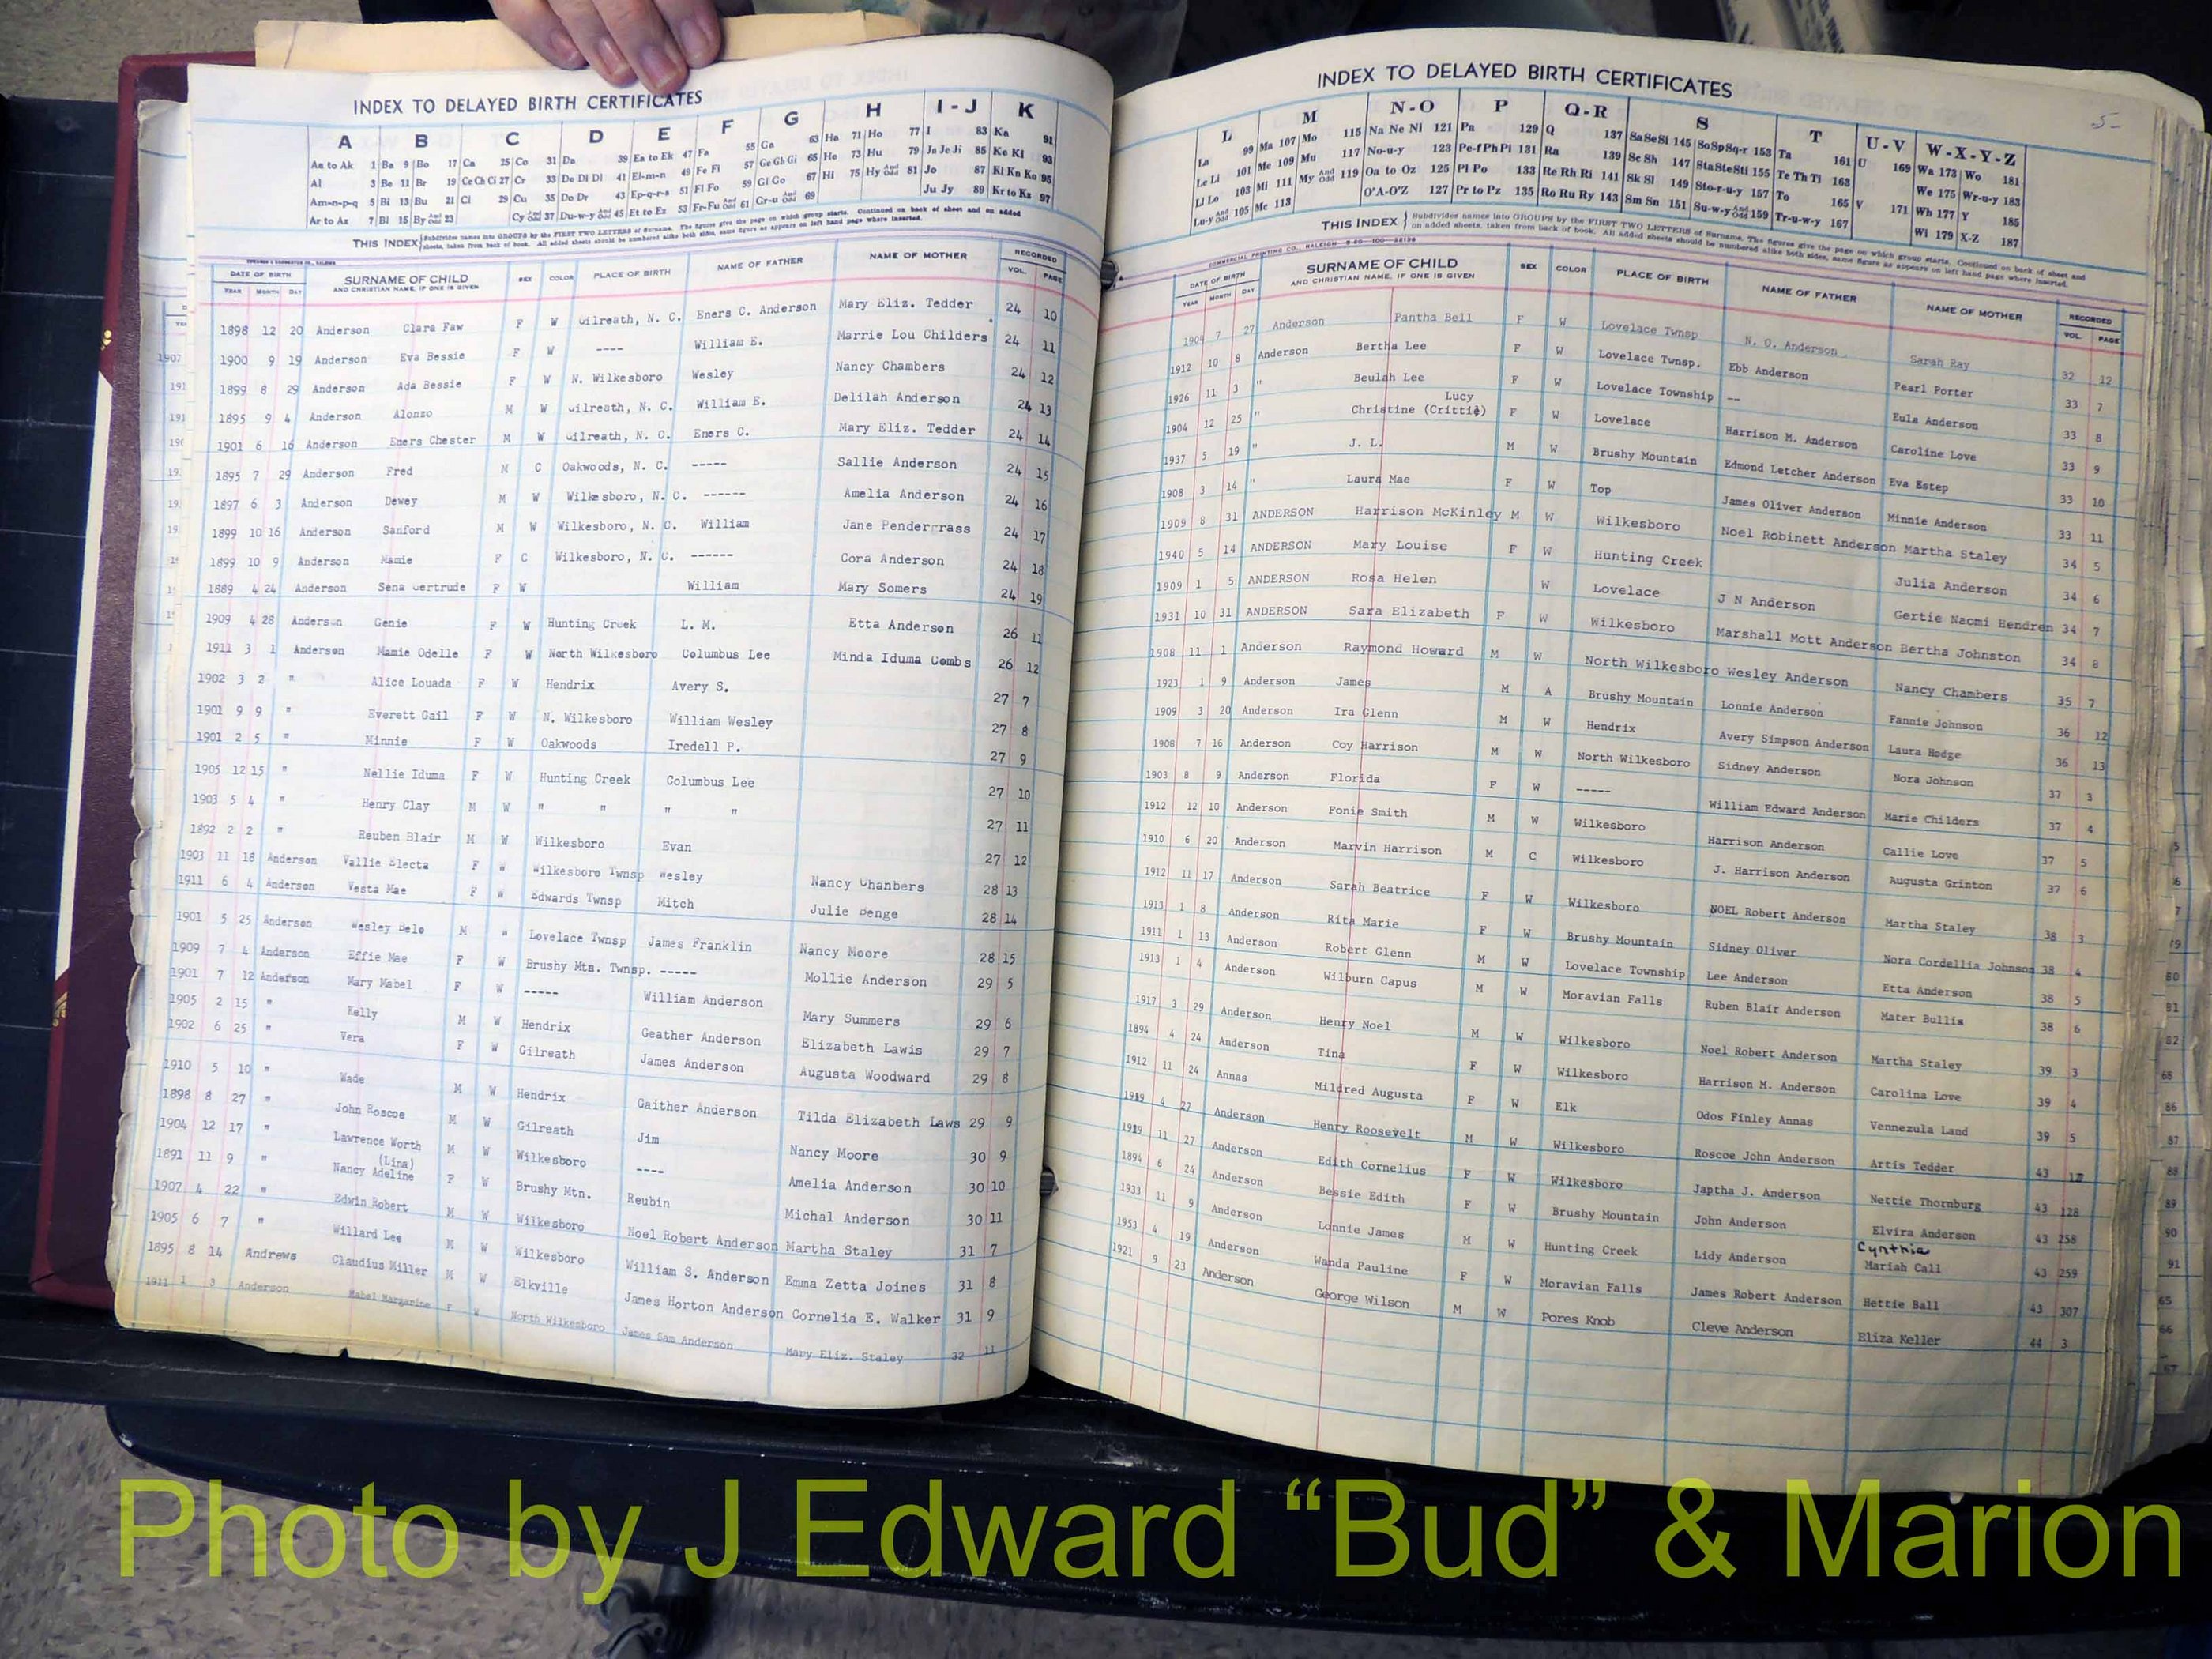 INDEX TO DELAYED BIRTH CERTIFICATES
A B C D E F G H I - J K
Aa to Ak 1 Ba 9 Bo 17 Ca 25 Co 31 Da 39 Ea to Ek 47 Fa 55 Ga 63 Ha 71 Ho 77 I 83 Ka 91
Al 3 Be 11 Br 19 Ce Ch Ci 27 Cr 33 De Di Dl 41 El-m-n 49 Fe Fi 57 Ge Gh Gi 65 He 73 Hu 79 Ja Je Ji 85 Ke Kl 93
Am-n-p-q 5 Bi 13 Bu 21 Cl 29 Cu 35 Do Dr 43 Ep-q-r-s 51 Fl Fo 59 Gl Go 67 Hi 75 Hy And Odd 81 Jo 87 Ki Kn Ko 95
Ar to Az 7 Bl 15 By And Odd 23 Cy And Odd 37 Du-w-y And Odd 45 Et to Ez 53 Fr-Fu And Odd 61 Gr-u And Odd 69 Ju Jy 89 Kr to Ks 97
THIS INDEX Subdivides names into GROUPS by the FIRST TWO LETTERS of Surname. The figures give the page on which group starts. Continued on back of sheet and on added
sheets, taken from back of book. All added sheets should be numbered alike both sides, same figure as appears on left hand page where inserted.
DATE OF BIRTH SURNAME OF CHILD SEX COLOR PLACE OF BIRTH NAME OF FATHER NAME OF MOTHER RECORDED
YEAR MONTH DAY AND CHRISTIAN NAME, IF ONE IS GIVEN VOL. PAGE
1898 12 20 Anderson Clara Faw F W Gilreath, N. C. Eners C. Anderson Mary Eliz. Tedder 24 10
1900 9 19 Anderson Eva Bessie F W ---- William E. Marrie Lou Childers 24 11
1899 8 29 Anderson Ada Bessie F W N. Wilkesboro Wesley Nancy Chambers 24 12
1895 9 4 Anderson Alonzo M W Gilreath, N. C. William E. Delilah Anderson 24 13
1901 6 16 Anderson Eners Chester M W Gilreath, N. C. Eners C. Mary Eliz. Tedder 24 14
1895 7 29 Anderson Fred M C Oakwoods, N. C. ----- Sallie Anderson 24 15
1897 6 3 Anderson Dewey M W Wilkesboro, N. C. ------ Amelia Anderson 24 16
1899 10 16 Anderson Sanford M W Wilkesboro, N. C. William Jane Pendergrass 24 17
1899 10 9 Anderson Mamie F C Wilkesboro, N. C. ------ Cora Anderson 24 18
1889 4 24 Anderson Sena Gertrude F W William Mary Somers 24 19
1909 4 28 Anderson Genie F W Hunting Creek L. M. Etta Anderson 26 11
1911 3 1 Anderson Mamie Odelle F W North Wilkesboro Columbus Lee Minda Iduma Combs 26 12
1902 3 2 " Alice Louada F W Hendrix Avery S. 27 7
1901 9 9 " Everett Gail F W N. Wilkesboro William Wesley 27 8
1901 2 5 " Minnie F W Oakwoods Iredell P. 27 9
1905 12 15 " Nellie Iduma F W Hunting Creek Columbus Lee 27 10
1903 5 4 " Henry Clay M W " " " " 27 11
1892 2 2 " Reuben Blair M W Wilkesboro Evan 27 12
1903 11 18 Anderson Vallie Electa F W Wilkesboro Twnsp Wesley Nancy Chanbers 28 13
1911 6 4 Anderson Vesta Mae F W Edwards Twnsp Mitch Julie Benge 28 14
1901 5 25 Anderson Wesley Belo M " Lovelace Twnsp James Franklin Nancy Moore 28 15
1909 7 4 Anderson Effie Mae F W Brushy Mtn. Twnsp. ----- Mollie Anderson 29 5
1901 7 12 Anderson Mary Mabel F W ----- William Anderson Mary Summers 29 6
1905 2 15 " Kelly M W Hendrix Geather Anderson Elizabeth Lawis 29 7
1902 6 25 " Vera F W Gilreath James Anderson Augusta Woodward 29 8
1910 5 10 " Wade M W Hendrix Gaither Anderson Tilda Elizabeth Laws 29 9
1898 8 27 " John Roscoe M W Gilreath Jim Nancy Moore 30 9
1904 12 17 " Lawrence Worth M W Wilkesboro ---- Amelia Anderson 30 10
(Lina)
1891 11 9 " Nancy Adeline F W Brushy Mtn. Reubin Michal Anderson 30 11
1907 4 22 " Edwin Robert M W Wilkesboro Noel Robert Anderson Martha Staley 31 7
1905 6 7 " Willard Lee M W Wilkesboro William S. Anderson Emma Zetta Joines 31 8
1895 8 14 Andrews Claudius Miller M W Elkville James Horton Anderson Cornelia E. Walker 31 9
1911 1 3 Anderson Mabel Margarine F W North Wilkesboro James Sam Anderson Mary Eliz. Staley 32 11
INDEX TO DELAYED BIRTH CERTIFICATES
5-
L M N-O P Q-R S T U-V W-X-Y-Z
La 99 Ma 107 Mo 115 Na Ne Ni 121 Pa 129 Q 137 Sa Se Si 145 So Sp Sq-r 153 Ta 161 U 169 Wa 173 Wo 181
Le Li 101 Me 109 Mu 117 No-u-y 123 Pe-f Ph Pi 131 Ra 139 Sc Sh 147 Sta Ste Sti 155 Te Th Ti 163 We 175 Wr-u-y 183
Ll Lo 103 Mi 111 My And Odd 119 Oa to Oz 125 Pl Po 133 Re Rh Ri 141 Sk Sl 149 Sto-r-u-y 157 To 165 V 171 Wh 177 Y 185
Lu-y And Odd 105 Mc 113 O'A-O'Z 127 Pr to Pz 135 Ro Ru Ry 143 Sm Sn 151 Su-w-y And Odd 159 Tr-u-w-y 167 Wi 179 X-Z 187
THIS INDEX Subdivides names into GROUPS by the FIRST TWO LETTERS of Surname. The figures give the page on which group starts. Continued on back of sheet and
on added sheets, taken from back of book. All added sheets should be numbered alike both sides, same figure as appears on left hand page where inserted.
COMMERCIAL PRINTING CO., RALEIGH
DATE OF BIRTH SURNAME OF CHILD SEX COLOR PLACE OF BIRTH NAME OF FATHER NAME OF MOTHER RECORDED
YEAR MONTH DAY AND CHRISTIAN NAME, IF ONE IS GIVEN VOL. PAGE
1904 7 27 Anderson Pantha Bell F W Lovelace Twnsp N. O. Anderson Sarah Ray 32 12
1912 10 8 Anderson Bertha Lee F W Lovelace Twnsp. Ebb Anderson Pearl Porter 33 7
1926 11 3 " Beulah Lee F W Lovelace Township -- Eula Anderson 33 8
Lucy
1904 12 25 " Christine (Crittie) F W Lovelace Harrison M. Anderson Caroline Love 33 9
1937 5 19 " J. L. M W Brushy Mountain Edmond Letcher Anderson Eva Estep 33 10
1908 3 14 " Laura Mae F W Top James Oliver Anderson Minnie Anderson 33 11
1909 8 31 ANDERSON Harrison McKinley M W Wilkesboro Noel Robinett Anderson Martha Staley 34 5
1940 5 14 ANDERSON Mary Louise F W Hunting Creek Julia Anderson 34 6
1909 1 5 ANDERSON Rosa Helen W Lovelace J N Anderson Gertie Naomi Hendren 34 7
1931 10 31 ANDERSON Sara Elizabeth F W Wilkesboro Marshall Mott Anderson Bertha Johnston 34 8
1908 11 1 Anderson Raymond Howard M W North Wilkesboro Wesley Anderson Nancy Chambers 35 7
1923 1 9 Anderson James M A Brushy Mountain Lonnie Anderson Fannie Johnson 36 12
1909 3 20 Anderson Ira Glenn M W Hendrix Avery Simpson Anderson Laura Hodge 36 13
1908 7 16 Anderson Coy Harrison M W North Wilkesboro Sidney Anderson Nora Johnson 37 3
1903 8 9 Anderson Florida F W ----- William Edward Anderson Marie Childers 37 4
1912 12 10 Anderson Fonie Smith M W Wilkesboro Harrison Anderson Callie Love 37 5
1910 6 20 Anderson Marvin Harrison M C Wilkesboro J. Harrison Anderson Augusta Grinton 37 6
1912 11 17 Anderson Sarah Beatrice F W Wilkesboro NOEL Robert Anderson Martha Staley 38 3
1913 1 8 Anderson Rita Marie F W Brushy Mountain Sidney Oliver Nora Cordellia Johnson 38 4
1911 1 13 Anderson Robert Glenn M W Lovelace Township Lee Anderson Etta Anderson 38 5
1913 1 4 Anderson Wilburn Capus M W Moravian Falls Ruben Blair Anderson Mater Bullis 38 6
1917 3 29 Anderson Henry Noel M W Wilkesboro Noel Robert Anderson Martha Staley 39 3
1894 4 24 Anderson Tina F W Wilkesboro Harrison M. Anderson Carolina Love 39 4
1912 11 24 Annas Mildred Augusta F W Elk Odos Finley Annas Vennezula Land 39 5
4 27 Anderson Henry Roosevelt M W Wilkesboro Roscoe John Anderson Artis Tedder 43
11 27 Anderson Edith Cornelius F W Wilkesboro Japtha J. Anderson Nettie Thornburg 43 128
1894 6 24 Anderson Bessie Edith F W Brushy Mountain John Anderson Elvira Anderson 43 258
Cynthia
1933 11 9 Anderson Lonnie James M W Hunting Creek Lidy Anderson Mariah Call 43 259
1953 4 19 Anderson Wanda Pauline F W Moravian Falls James Robert Anderson Hettie Ball 43 307
1921 9 23 Anderson George Wilson M W Pores Knob Cleve Anderson Eliza Keller 44 3
Photo by J Edward “Bud” & Marion